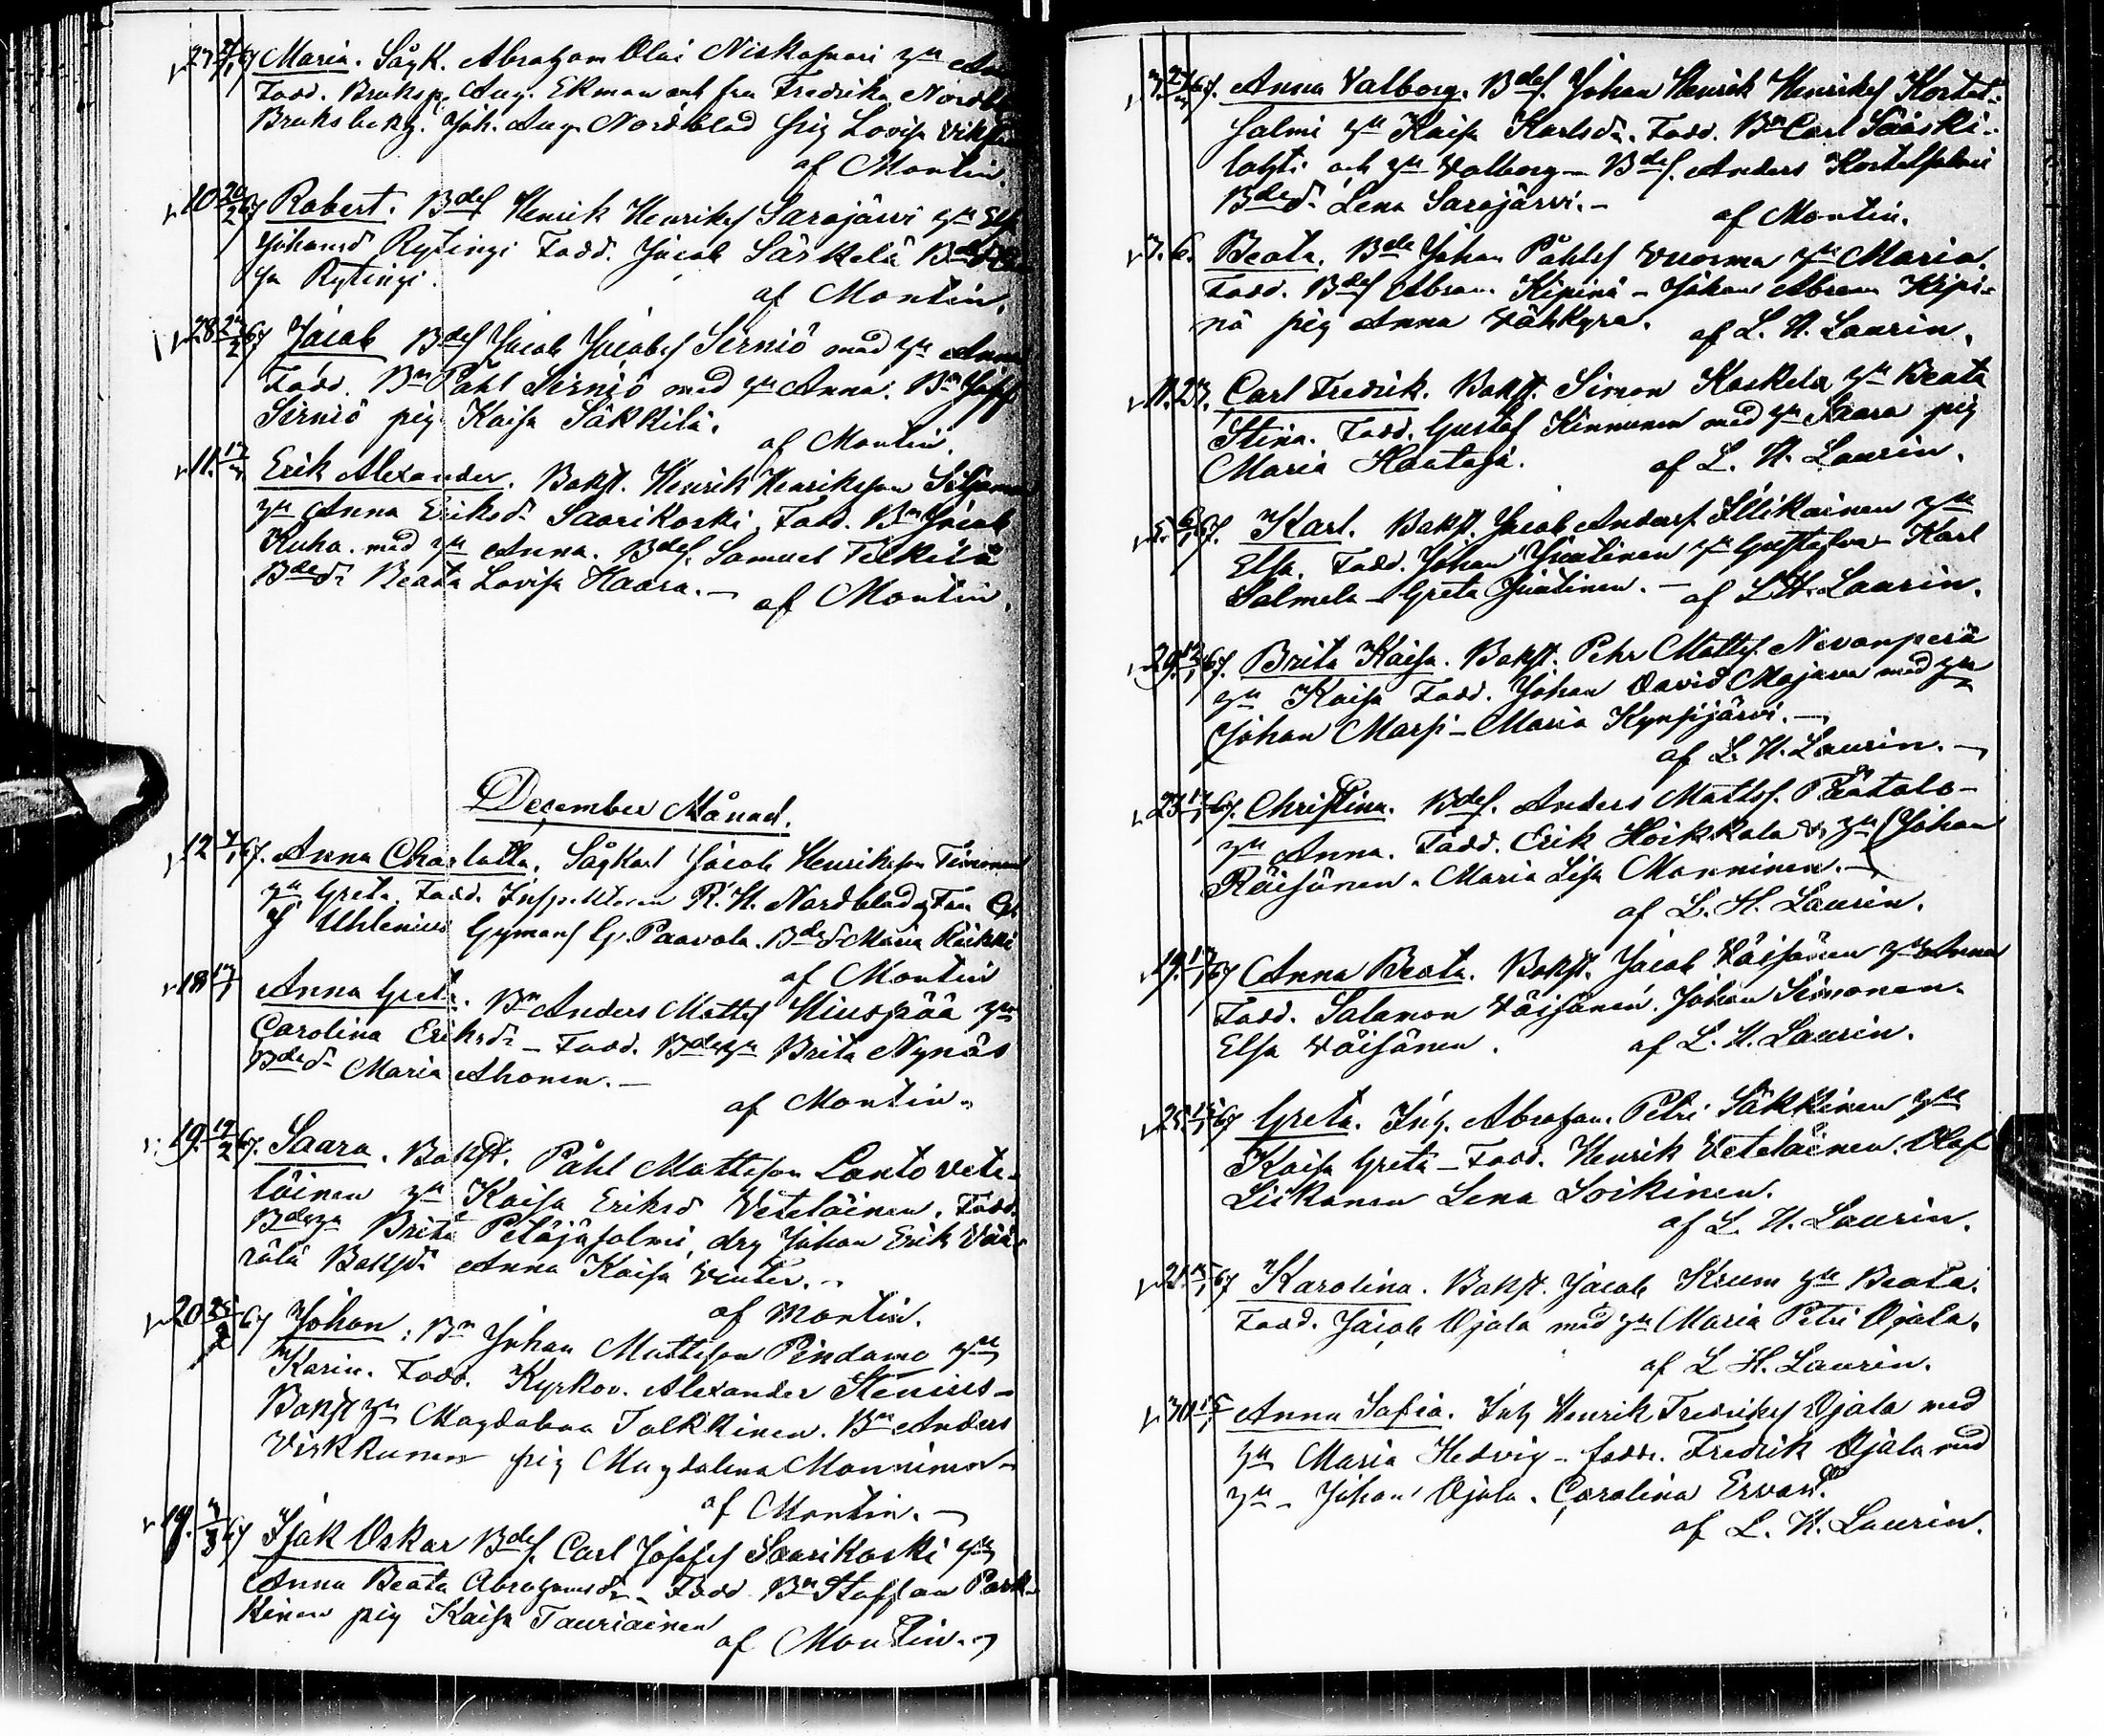 27 Maria. Sågk. Abraham Olai Niskasaari
Fadd. Bruksp. Aug. Ekman och fru Fredrika Nordbl
Bruksbokh. Joh. Aug. Nordblad pig Lovisa
af Montin.
10 20/2 67 Robert. Bdes Henrik Henrikss Sarajärvi hu
Johansd Rytingi Fadd. Jacob Särkelä
Rytingi.
af Montin.
28 2 67 Jacob Bdes Jacob Jacobss Sirniö med hu Anna
Fadd. Bn Påhl Sirniö med hu Anna. Bn
Sirniö pig Kaisa Säkkilä.
af Montin.
11. Erik Alexander. Bakst. Henrik Henriksson
hu Anna Eriksdr Saarikoski, Fadd. Bn Jacob
Kuha med hu Anna. Bdes. Samuel Telkilä
Bdedr Beata Lovisa Haara. –
af Montin.
December Månad.
12 67. Anna Charlotta. Sågkarl Jacob Henriksson
hu Greta. Fadd. Inspektoren R. H. Nordblad, Fru
Uhlenius G. Paavola. Bdedr Maria
af Montin
18 Anna Greta. Bn Anders Mattss Hiuspää hu
Carolina Eriksdr – Fadd. Bdehu Brita Nynäs
Bdedr Maria Ahonen. –
af Montin.
19. 19/2 67. Saara. Bakst. Påhl Mattsson Lanto Vete-
läinen hu Kaisa Eriksd Veteläinen. Fadd.
Bdehu Brita Petäjäsalmi, drg Johan Erik Vää-
rälä Bakstdr Anna Kaisa
af Montin.
20 67 Johan. Bn Johan Mattsson Pindamo hu
Karin. Fadd. Kyrkov. Alexander Stenius –
Bakst hu Magdalena Tolkkinen. Bn Anders
Virkkunen pig Magdalena Manninen –
af Montin. –
19. 67 Isak Oskar Bdes. Carl Josefss Saarikoski hu
Anna Beata Abrahamsdr. Fadd Bn Staffan Park-
kinen pig Kaisa Tauriainen
af Montin. –
7. 67. Anna Valborg. Bdes. Johan Henrik Henrikss Kortet-
salmi hu Kaisa Karlsdr. Fadd. Bn Carl Sääski-
lahti och hu Valborg – Bdes. Anders Kortetsalmi
Bdedr Lena Sarajärvi. –
af Montin.
7. 6. Beata. Bde Johan Påhlss Vuorma hu Maria.
Fadd. Bdes Abram Kipinä – Johan Abram Kipi-
nä pig Anna Vähkyrä.
af L. H. Laurin.
11. 27. Carl Fredrik. Bakst. Simon Koskela hu Beata
Stina. Fadd. Gustaf Kinnunen med hu Saara pig
Maria Hautasi.
af L. H. Laurin.
5. 67. Karl. Bakst. Jacob Anderss Illikainen hu
Elsa. Fadd. Johan Juutinen hu Gustafva – Karl
Salmela – Greta Juutinen. –
af L H. Laurin.
29. 12 67. Brita Kaisa. Bakst. Pehr Mattss. Nevanperä
hu Kaisa Fadd. Johan David Majava med hu
Johan Marsi – Maria Kynsijärvi. –
af L. H. Laurin. –
23 67. Christina. Bdes. Anders Mattss. Päätalo –
hu Anna. Fadd. Erik Hoikkala & hu Johan
Räisänen. Maria Lisa Manninen. –
af L. H. Laurin.
19. 67 Anna Beata. Bakst. Jacob Väisänen hu Anna
Fadd. Salamon Väisänen. Johan Simonen.
Elsa Väisänen.
af L. H. Laurin.
25. 67 Greta. Inh. Abraham Petri Säkkinen hu
Kaisa Greta – Fadd. Henrik Veteläinen. Olof
Liikanen Lena Loikinen.
af L. H. Laurin.
21. 67 Karolina. Bakst. Jacob Krum hu Beata.
Fadd. Jacob Ojala med hu Maria Petri Ojala.
af L H. Laurin.
30 Anna Sofia. Inh Henrik Fredrikss Ojala med
hu Maria Hedvig – fadd. Fredrik Ojala med
hu – Johan Ojala. Carolina Ervast.
af L. H. Laurin.